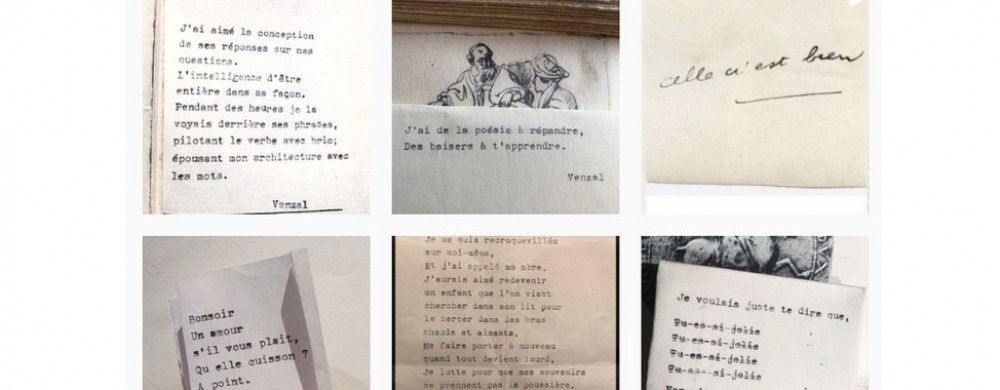 J'ai aimé la conception
de ses réponses sur mes
questions.
L'intelligence d'être
entière dans sa façon.
Pendant des heures je la
voyais derrière ses phrases,
pilotant le verbe avec brio;
épousant mon architecture avec
les mots.
Venzal
J'ai de la poésie à répandre,
Des baisers à t'apprendre.
Venzal
celle ci est bien
Bonsoir
Un amour
s'il vous plait,
Qu elle cuisson ?
A point.
Je me suis recroquevillée
sur moi-même,
Et j'ai appelé ma mère.
J'aurais aimé redevenir
un enfant que l'on vient
chercher dans son lit pour
le bercer dans des bras
chauds et aimants.
Me faire porter à nouveau
quand tout devient lourd.
Je lutte pour que mes souvenirs
ne prennent pas la poussière.
Je voulais juste te dire que,
Tu-es-si-jolie
Tu-es-si-jolie
Tu-es-si-jolie
Tu-es-si-jolie